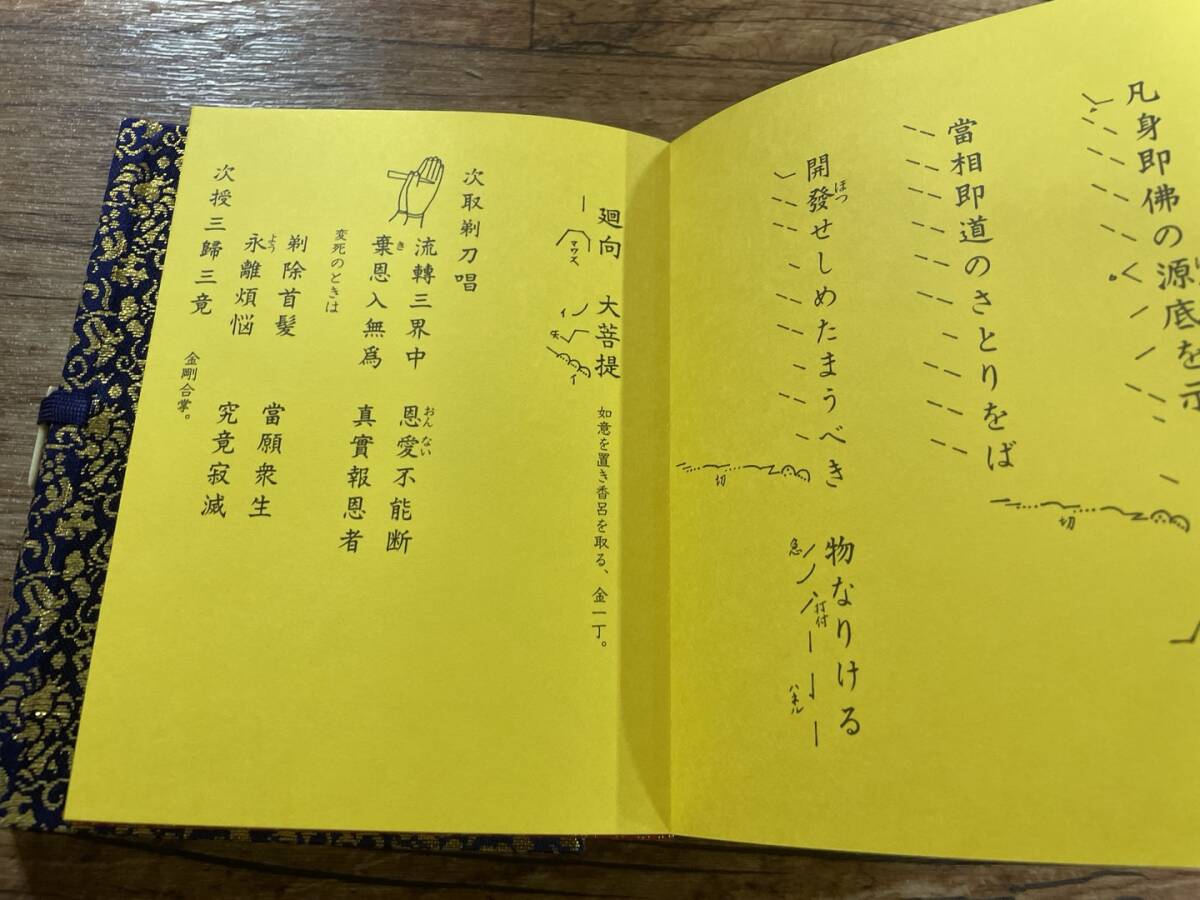 凡身即佛の源底を示
切
當相即道のさとりをば
開發せしめたまうべき
ほつ
切
物なりける
急
打付
ハネル
廻向 大菩提
マワス
イ
イ
如意を置き香呂を取る、金一丁。
次取剃刀唱
流轉三界中 恩愛不能断
おん ない
棄恩入無爲 真實報恩者
き
変死のときは
剃除首髮 當願衆生
永離煩悩 究竟寂滅
よう
次授三歸三竟 金剛合掌。